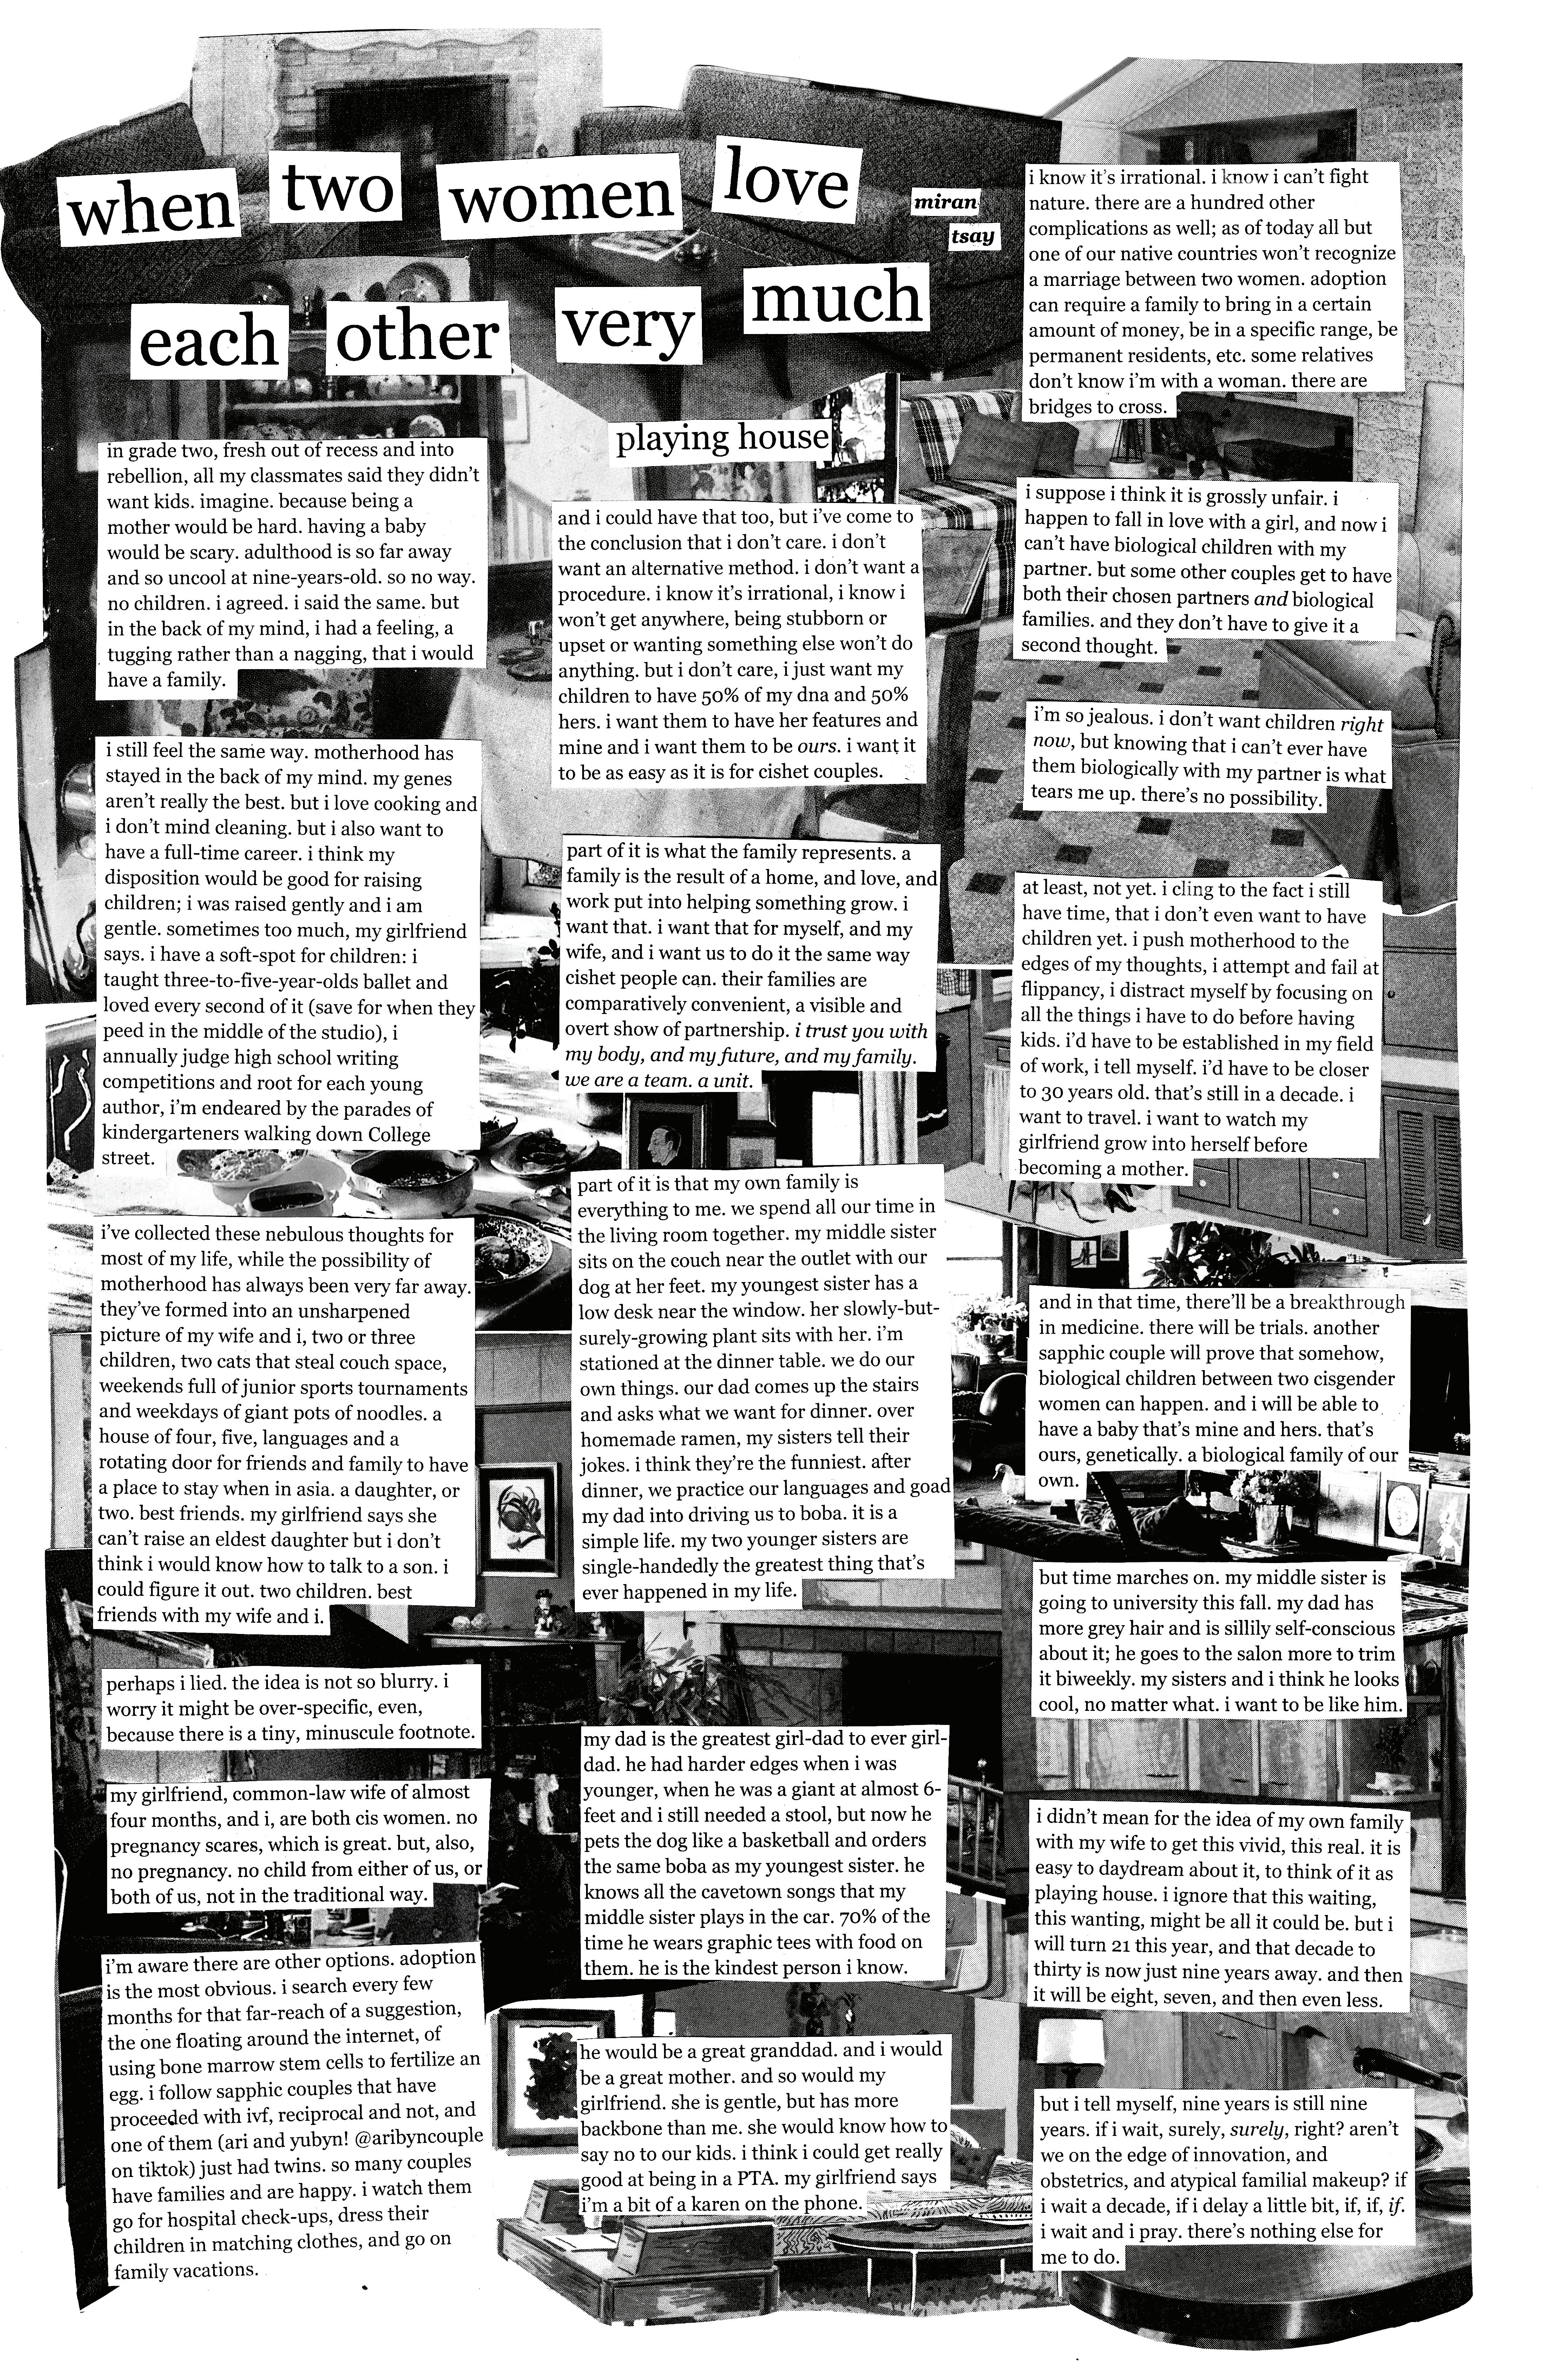 when two women love
each other very much
miran
tsay
in grade two, fresh out of recess and into
rebellion, all my classmates said they didn't
want kids. imagine. because being a
mother would be hard. having a baby
would be scary. adulthood is so far away
and so uncool at nine-years-old. so no way.
no children. i agreed. i said the same. but
in the back of my mind, i had a feeling, a
tugging rather than a nagging, that i would
have a family.
i still feel the same way. motherhood has
stayed in the back of my mind. my genes
aren't really the best. but i love cooking and
i don't mind cleaning. but i also want to
have a full-time career. i think my
disposition would be good for raising
children; i was raised gently and i am
gentle. sometimes too much, my girlfriend
says. i have a soft-spot for children: i
taught three-to-five-year-olds ballet and
loved every second of it (save for when they
peed in the middle of the studio), i
annually judge high school writing
competitions and root for each young
author, i'm endeared by the parades of
kindergarteners walking down College
street.
i've collected these nebulous thoughts for
most of my life, while the possibility of
motherhood has always been very far away.
they've formed into an unsharpened
picture of my wife and i, two or three
children, two cats that steal couch space,
weekends full of junior sports tournaments
and weekdays of giant pots of noodles. a
house of four, five, languages and a
rotating door for friends and family to have
a place to stay when in asia. a daughter, or
two. best friends. my girlfriend says she
can't raise an eldest daughter but i don't
think i would know how to talk to a son. i
could figure it out. two children. best
friends with my wife and i.
perhaps i lied. the idea is not so blurry. i
worry it might be over-specific, even,
because there is a tiny, minuscule footnote.
my girlfriend, common-law wife of almost
four months, and i, are both cis women. no
pregnancy scares, which is great. but, also,
no pregnancy. no child from either of us, or
both of us, not in the traditional way.
i'm aware there are other options. adoption
is the most obvious. i search every few
months for that far-reach of a suggestion,
the one floating around the internet, of
using bone marrow stem cells to fertilize an
egg. i follow sapphic couples that have
proceeded with ivf, reciprocal and not, and
one of them (ari and yubyn! @aribyncouple
on tiktok) just had twins. so many couples
have families and are happy. i watch them
go for hospital check-ups, dress their
children in matching clothes, and go on
family vacations.
playing house
and i could have that too, but i've come to
the conclusion that i don't care. i don't
want an alternative method. i don't want a
procedure. i know it's irrational, i know i
won't get anywhere, being stubborn or
upset or wanting something else won't do
anything. but i don't care, i just want my
children to have 50% of my dna and 50%
hers. i want them to have her features and
mine and i want them to be ours. i want it
to be as easy as it is for cishet couples.
part of it is what the family represents. a
family is the result of a home, and love, and
work put into helping something grow. i
want that. i want that for myself, and my
wife, and i want us to do it the same way
cishet people can. their families are
comparatively convenient, a visible and
overt show of partnership. i trust you with
my body, and my future, and my family.
we are a team. a unit.
part of it is that my own family is
everything to me. we spend all our time in
the living room together. my middle sister
sits on the couch near the outlet with our
dog at her feet. my youngest sister has a
low desk near the window. her slowly-but-
surely-growing plant sits with her. i'm
stationed at the dinner table. we do our
own things. our dad comes up the stairs
and asks what we want for dinner. over
homemade ramen, my sisters tell their
jokes. i think they're the funniest. after
dinner, we practice our languages and goad
my dad into driving us to boba. it is a
simple life. my two younger sisters are
single-handedly the greatest thing that's
ever happened in my life.
my dad is the greatest girl-dad to ever girl-
dad. he had harder edges when i was
younger, when he was a giant at almost 6-
feet and i still needed a stool, but now he
pets the dog like a basketball and orders
the same boba as my youngest sister. he
knows all the cavetown songs that my
middle sister plays in the car. 70% of the
time he wears graphic tees with food on
them. he is the kindest person i know.
he would be a great granddad. and i would
be a great mother. and so would my
girlfriend. she is gentle, but has more
backbone than me. she would know how to
say no to our kids. i think i could get really
good at being in a PTA. my girlfriend says
i'm a bit of a karen on the phone.
i know it's irrational. i know i can't fight
nature. there are a hundred other
complications as well; as of today all but
one of our native countries won't recognize
a marriage between two women. adoption
can require a family to bring in a certain
amount of money, be in a specific range, be
permanent residents, etc. some relatives
don't know i'm with a woman. there are
bridges to cross.
i suppose i think it is grossly unfair. i
happen to fall in love with a girl, and now i
can't have biological children with my
partner. but some other couples get to have
both their chosen partners and biological
families. and they don't have to give it a
second thought.
i'm so jealous. i don't want children right
now, but knowing that i can't ever have
them biologically with my partner is what
tears me up. there's no possibility.
at least, not yet. i cling to the fact i still
have time, that i don't even want to have
children yet. i push motherhood to the
edges of my thoughts, i attempt and fail at
flippancy, i distract myself by focusing on
all the things i have to do before having
kids. i'd have to be established in my field
of work, i tell myself. i'd have to be closer
to 30 years old. that's still in a decade. i
want to travel. i want to watch my
girlfriend grow into herself before
becoming a mother.
and in that time, there'll be a breakthrough
in medicine. there will be trials. another
sapphic couple will prove that somehow,
biological children between two cisgender
women can happen. and i will be able to
have a baby that's mine and hers. that's
ours, genetically. a biological family of our
own.
but time marches on. my middle sister is
going to university this fall. my dad has
more grey hair and is sillily self-conscious
about it; he goes to the salon more to trim
it biweekly. my sisters and i think he looks
cool, no matter what. i want to be like him.
i didn't mean for the idea of my own family
with my wife to get this vivid, this real. it is
easy to daydream about it, to think of it as
playing house. i ignore that this waiting,
this wanting, might be all it could be. but i
will turn 21 this year, and that decade to
thirty is now just nine years away. and then
it will be eight, seven, and then even less.
but i tell myself, nine years is still nine
years. if i wait, surely, surely, right? aren't
we on the edge of innovation, and
obstetrics, and atypical familial makeup? if
i wait a decade, if i delay a little bit, if, if, if.
i wait and i pray. there's nothing else for
me to do.